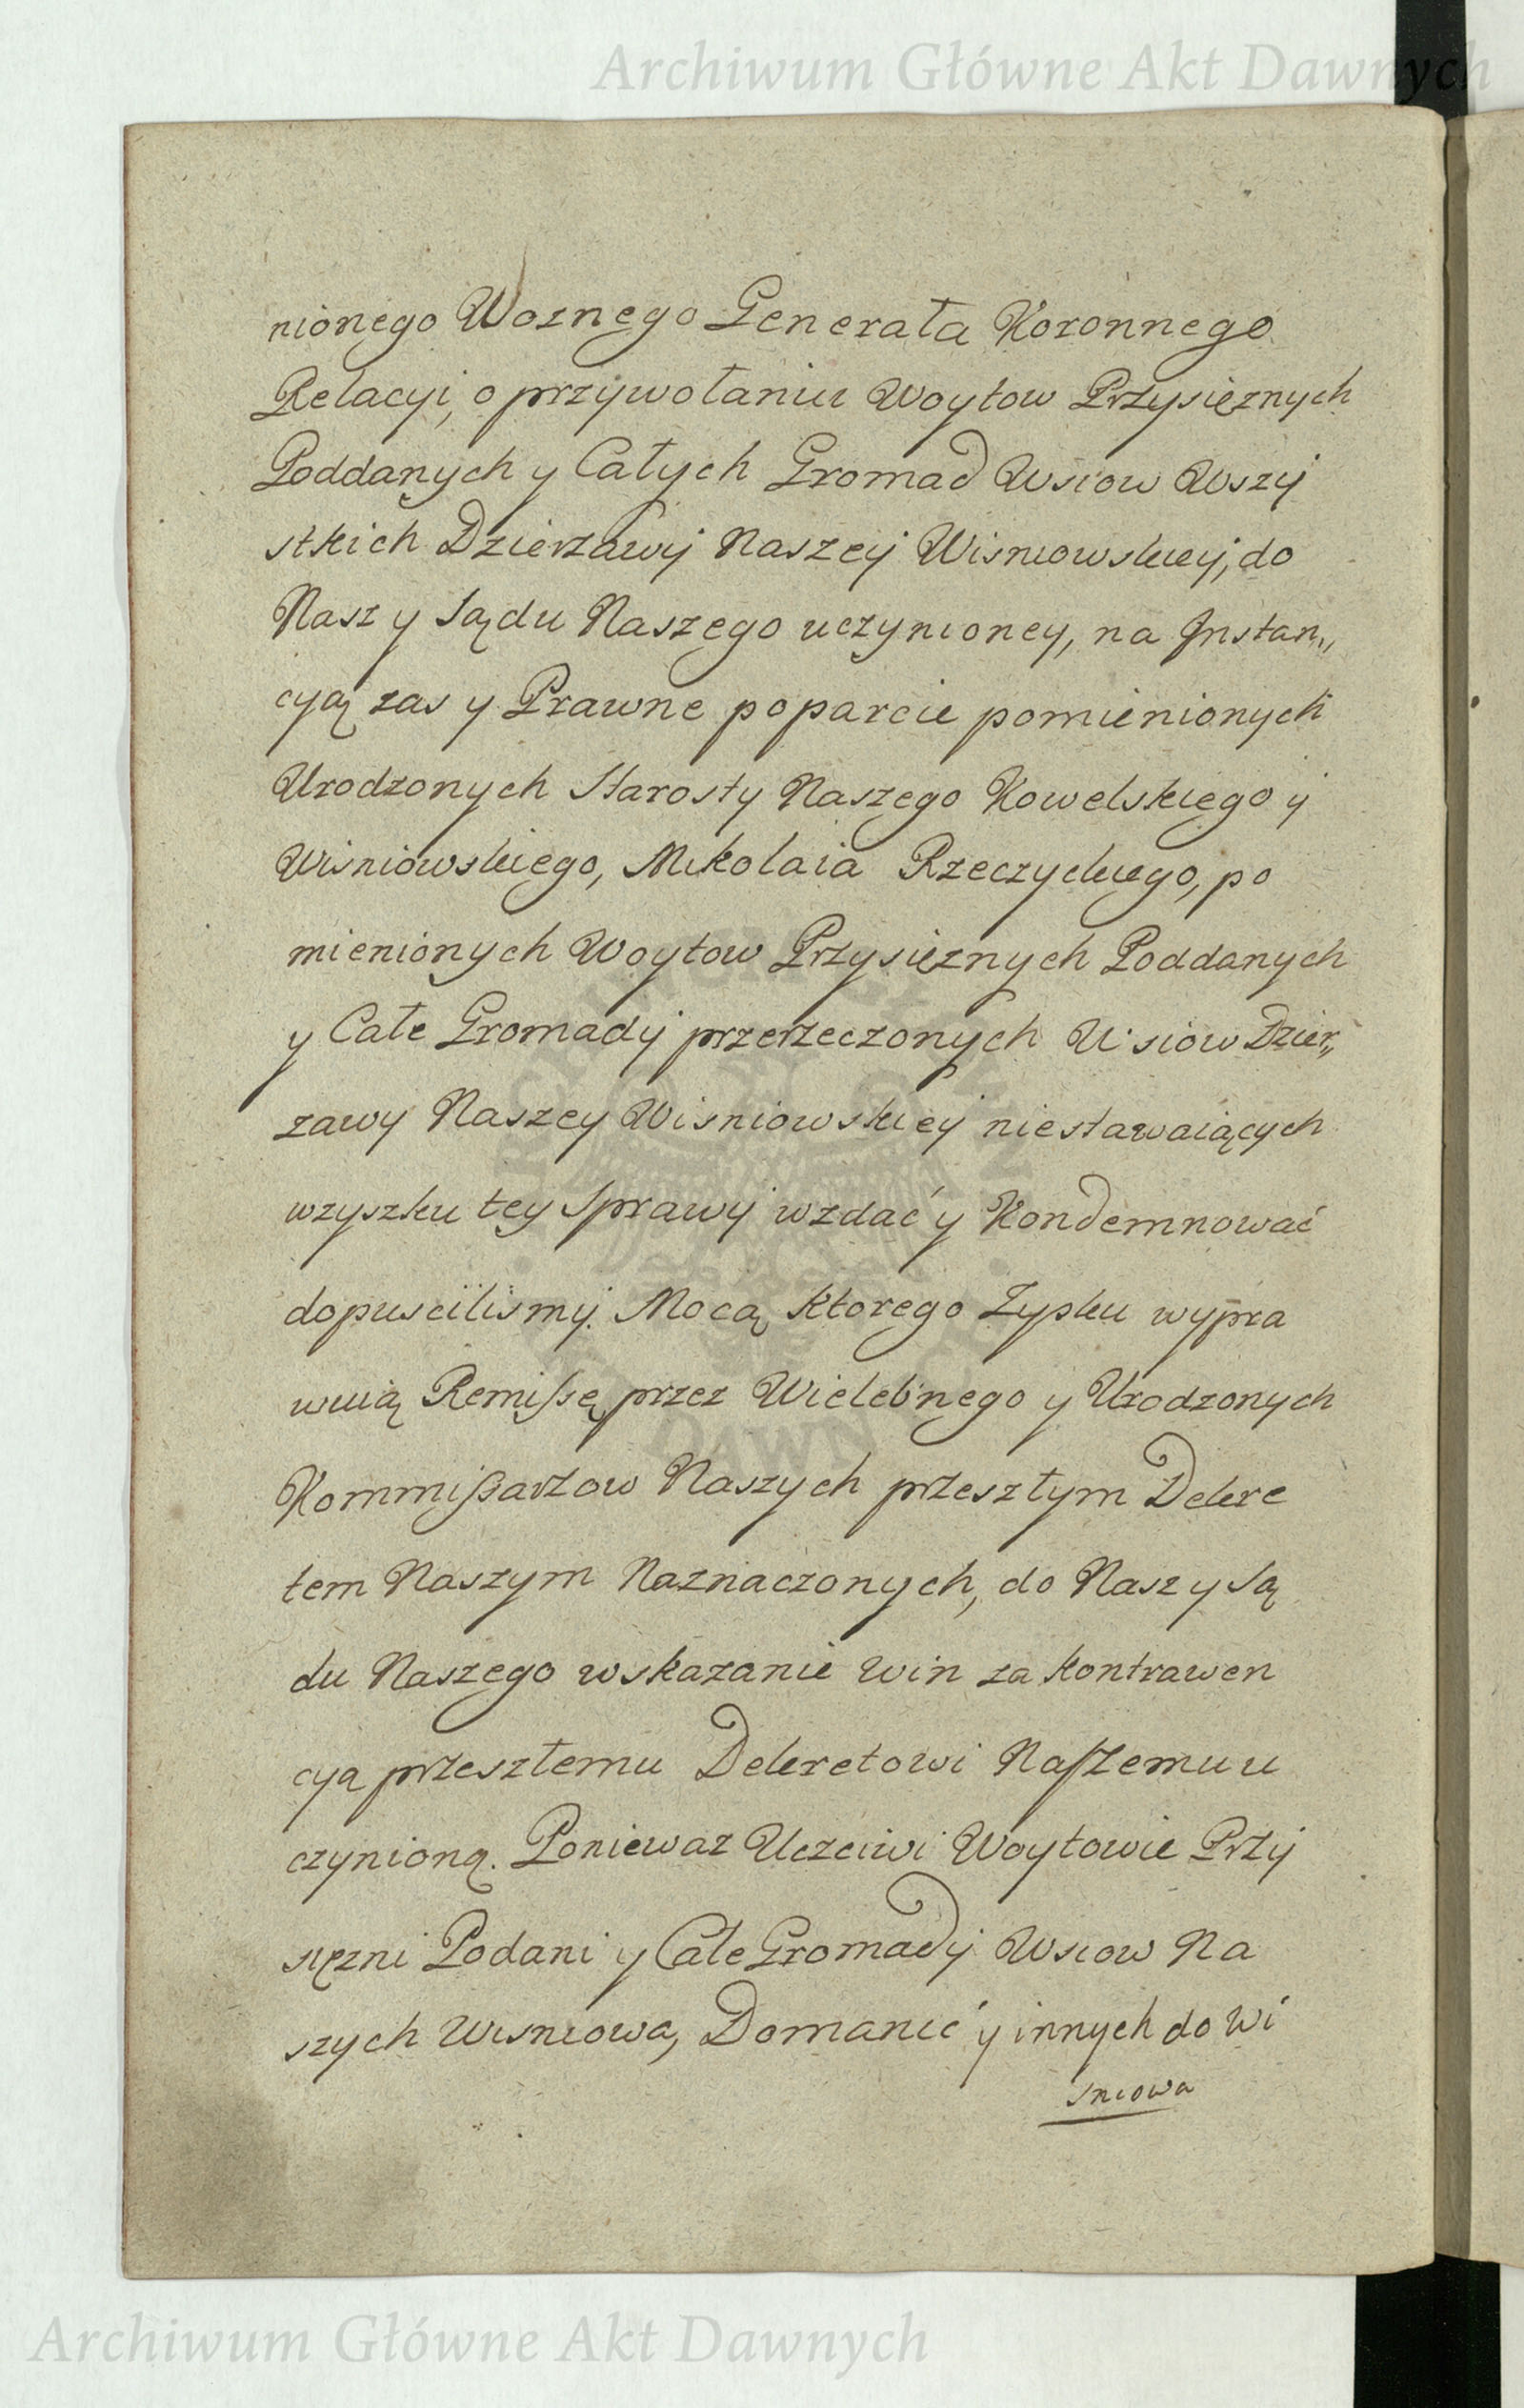 Archiwum Główne Akt Dawnych
nionego Woznego Generała Koronnego
Relacyi, o przywołaniu Woytow Przysięznych
Poddanych y Całych Gromad Wsiow Wszy
stkich Dzierzawy Naszey Wisniowskiey, do
Nasz y Sądu Naszego uczynioney, na Instan„
cyą zas y Prawne poparcie pomienionych
Urodzonych Starosty Naszego Kowelskiego y
Wisniowskiego, Mikolaia Rzeczyckiego, po
mienionych Woytow Przysięznych Poddanych
y Całe Gromady przerzeczonych Wsiow Dzier„
zawy Naszey Wisniowskiey niestawaiących
wzyszku tey Sprawy wzdać y Kondemnować
dopuscilismy. Mocą ktorego Zysku wypra
wuią Remissę przez Wielebnego y Urodzonych
Kommißarzow Naszych przeszłym Dekre
tem Naszym Naznaczonych, do Nasz y Są
du Naszego wskazanie win za kontrawen
cya przeszłemu Dekretowi Naszemu u
czynioną. Poniewaz Uczciwi Woytowie Przy
sięzni Podani y Całe Gromady Wsiow Na
szych Wisniowa, Domanic y innych do Wi
sniowa
ARCHIWUM
DAWN
Archiwum Główne Akt Dawnych